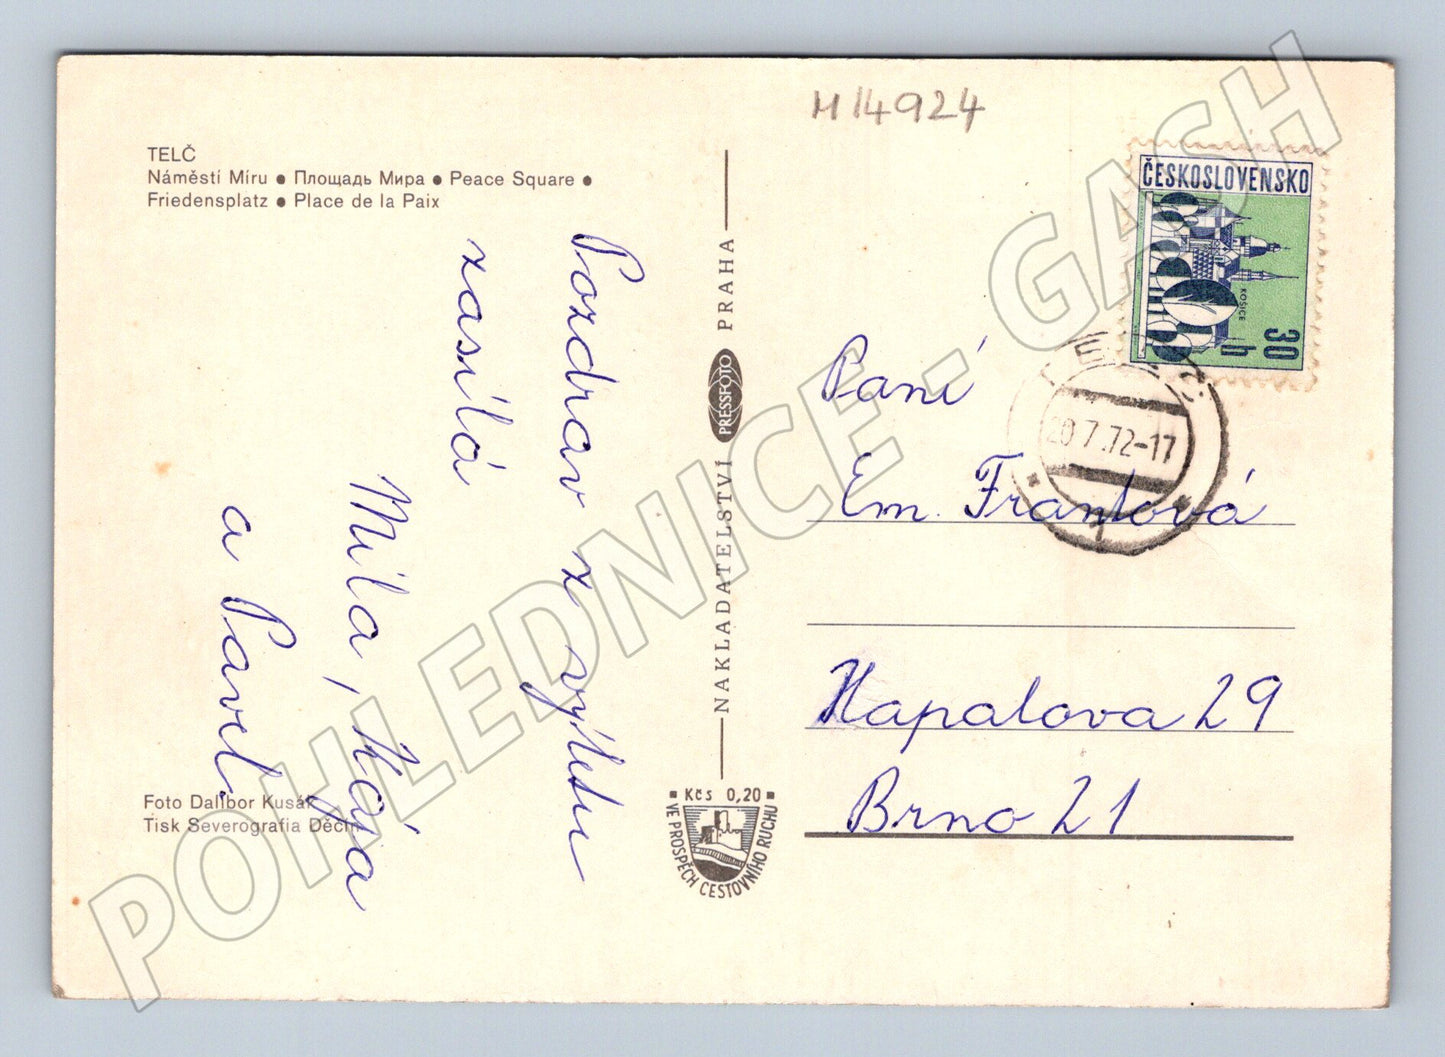 M 14924
TELČ
Náměstí Míru ● Площадь Мира ● Peace Square ●
Friedensplatz ● Place de la Paix
Pozdrav z výletu
zasílá
Míla, Kája
a Pavel.
Foto Dalibor Kusák
Tisk Severografia Děčín
NAKLADATELSTVÍ PRESSFOTO PRAHA
Kčs 0,20
VE PROSPĚCH CESTOVNÍHO RUCHU
ČESKOSLOVENSKO
KOŠICE
30 h
20.7.72-17
Paní
Em. Frantová
Hapalova 29
Brno 21
POHLEDNICE - GASH